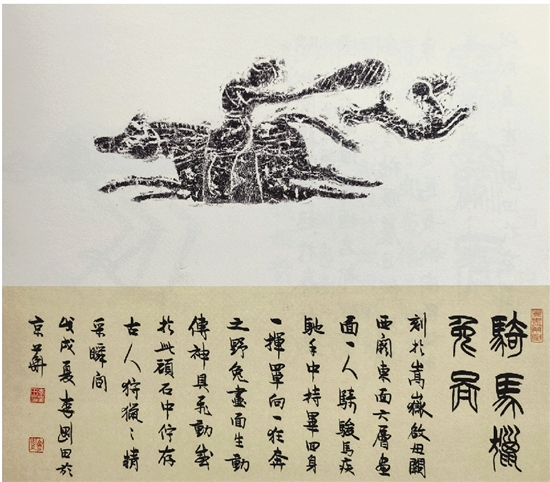 騎馬獵
兔啚
刻於嵩嶽啟母闕
西闕東面六層畫
面一人騎駿馬疾
馳手中持畢回身
一揮罩向一狂奔
之野兔畫面生動
傳神具飛動感
於此頑石中佇存
古人狩獵之精
采瞬間
戊戌夏李剛田於
京華